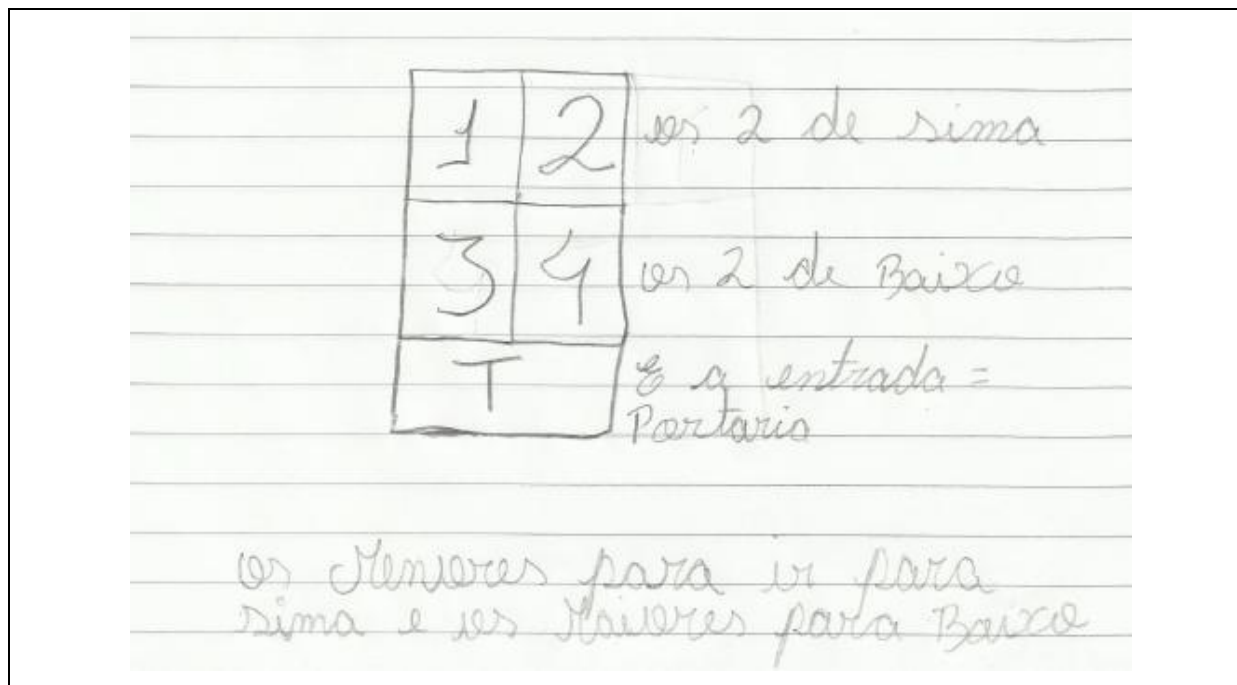 1 2 os 2 de sima
3 4 os 2 de Baixo
T E a entrada =
Portaria
os Menores para ir para
sima e os Maiores para Baixo